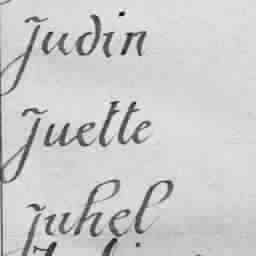 Judin
Juette
Juhel